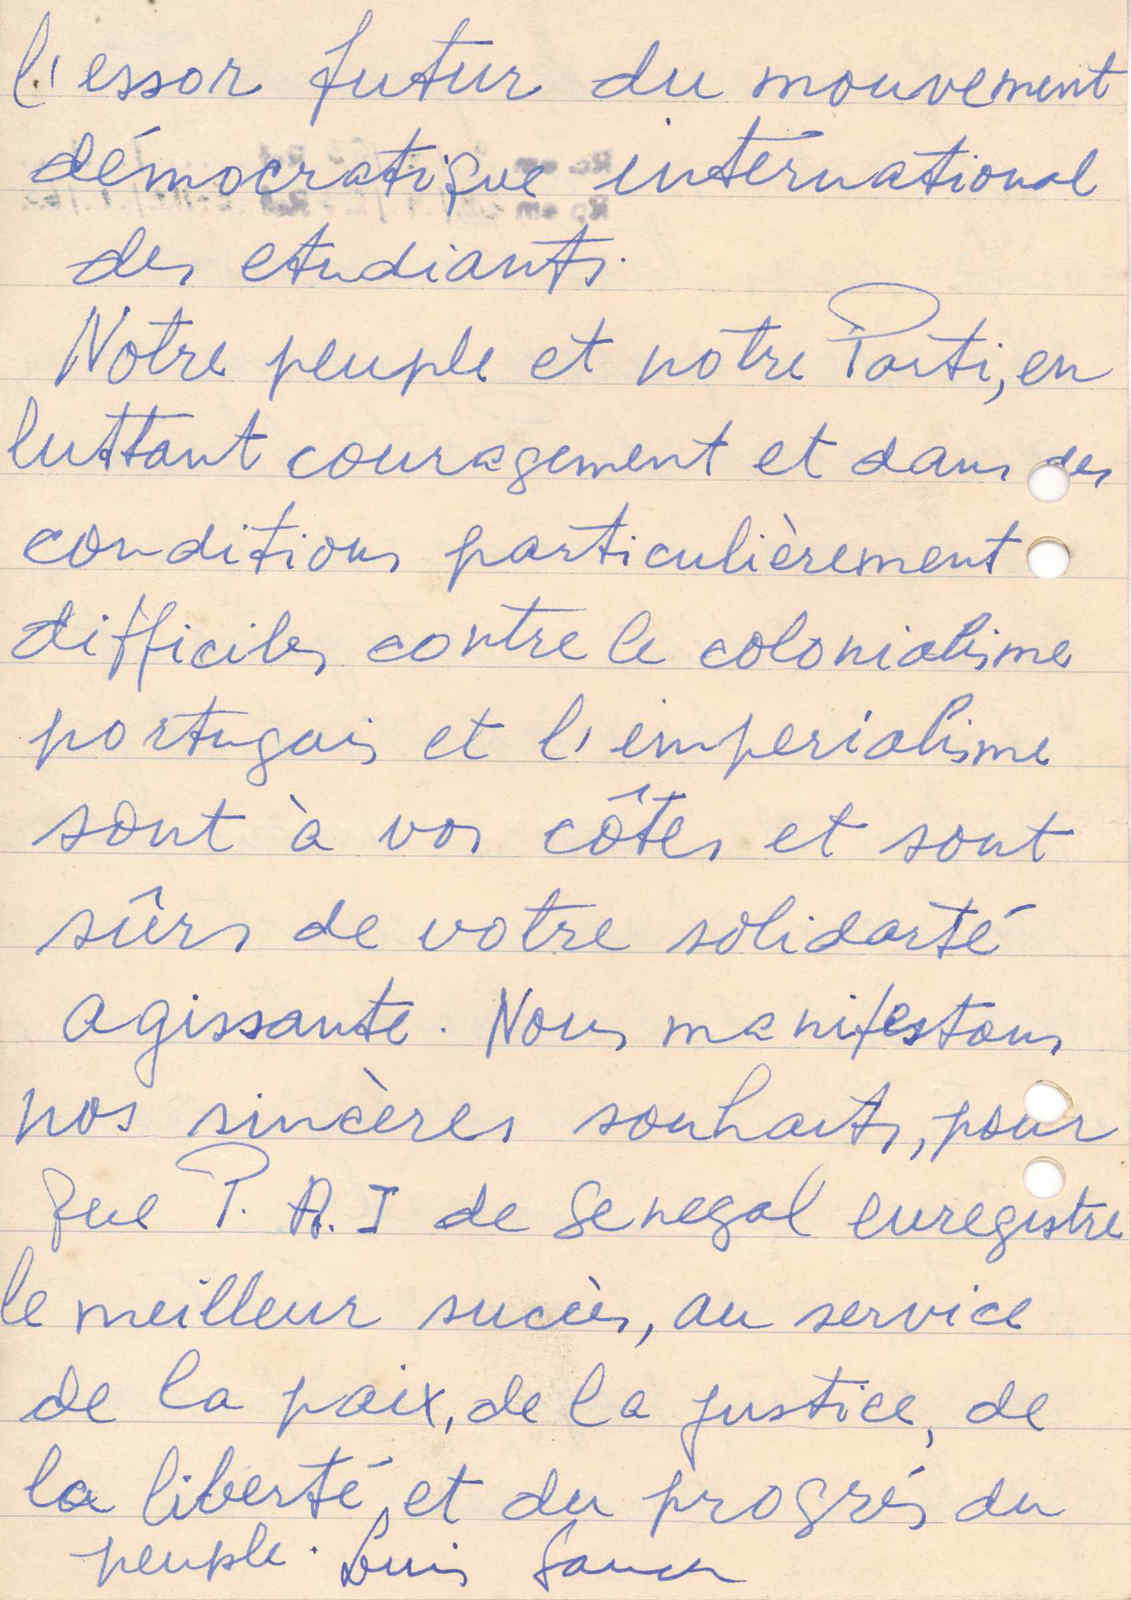 l'essor futur du mouvement
démocratique international
des etudiants.
Notre peuple et notre Parti, en
luttant couragement et dans des
conditions particulièrement
difficiles contre le colonialisme
portugais et l'imperialisme
sont à vos côtés et sont
sûrs de votre solidarté
agissante. Nous manifestons
nos sincères souhaits, pour
que P. A. I de Senegal enregistre
le meilleur succès, au service
de la paix, de la justice, de
la liberté, et du progrés du
peuple. Luis